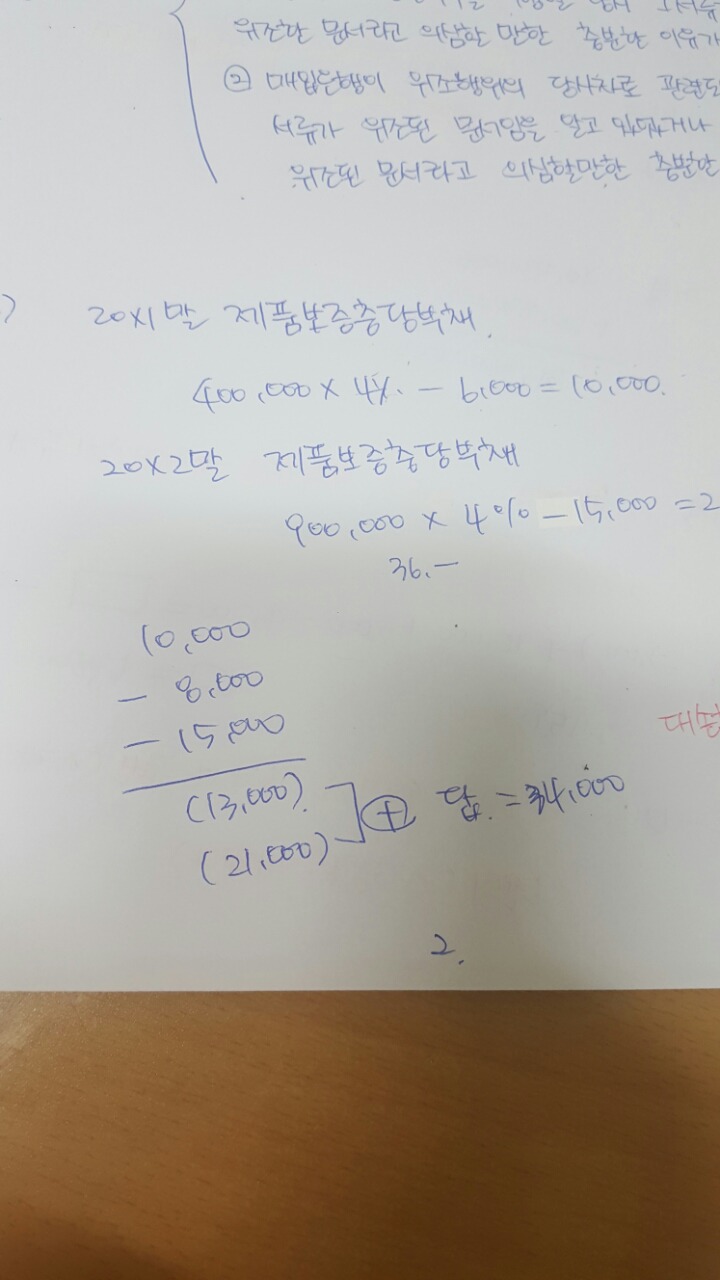 위조한 문서라고 의심할 만한 충분한 이유가
② 매입은행이 위조행위의 당사자로 관련되
서류가 위조된 문서임을 알고 있었거나
위조된 문서라고 의심할만한 충분한
20X1말 제품보증충당부채
400,000 X 4%. - 6,000 = 10,000.
20X2말 제품보증충당부채
900,000 X 4% - 15,000 = 2
36.-
10,000
- 8,000
- 15,000
(13,000)
(21,000)
+ 답. = 34,000
2.